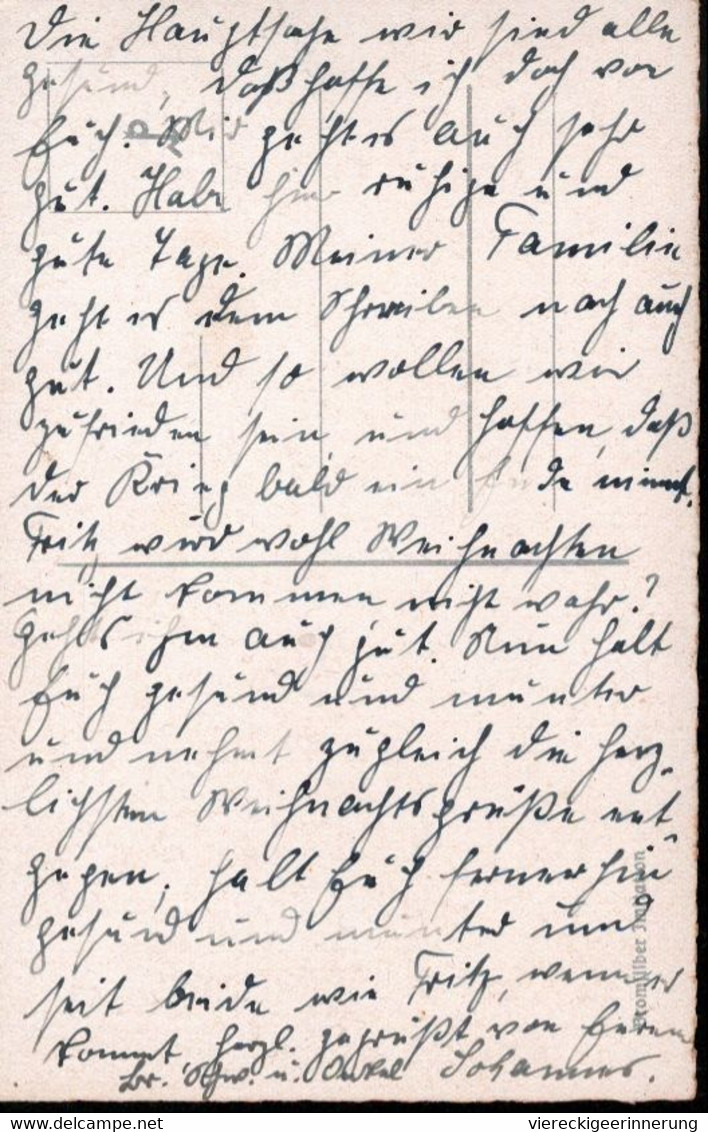 Die Hauptsache wir sind alle
gesund, daß hoffe ich doch von
Euch. Mir geht es auch sehr
gut. Habe hier ruhige und
gute Tage. Meiner Familie
geht es dem Schreiben nach auch
gut. Und so wollen wir
zufrieden sein und hoffen, daß
der Krieg bald ein Ende nimmt.
Fritz wird wohl Weihnachten
nicht kommen nicht wahr?
Gehts ihm auch gut. Nun halt
Euch gesund und munter
und nehmt zugleich die herz-
lichsten Weihnachtsgrüße ent-
gegen, halt Euch fernerhin
gesund und munter und
seit beide wie Fritz, wenn er
kommt, herzl. gegrüßt von Euren
Br. Schw. u. Onkel Johannes.
Bromsilber Imitation
viereckigeerinnerung